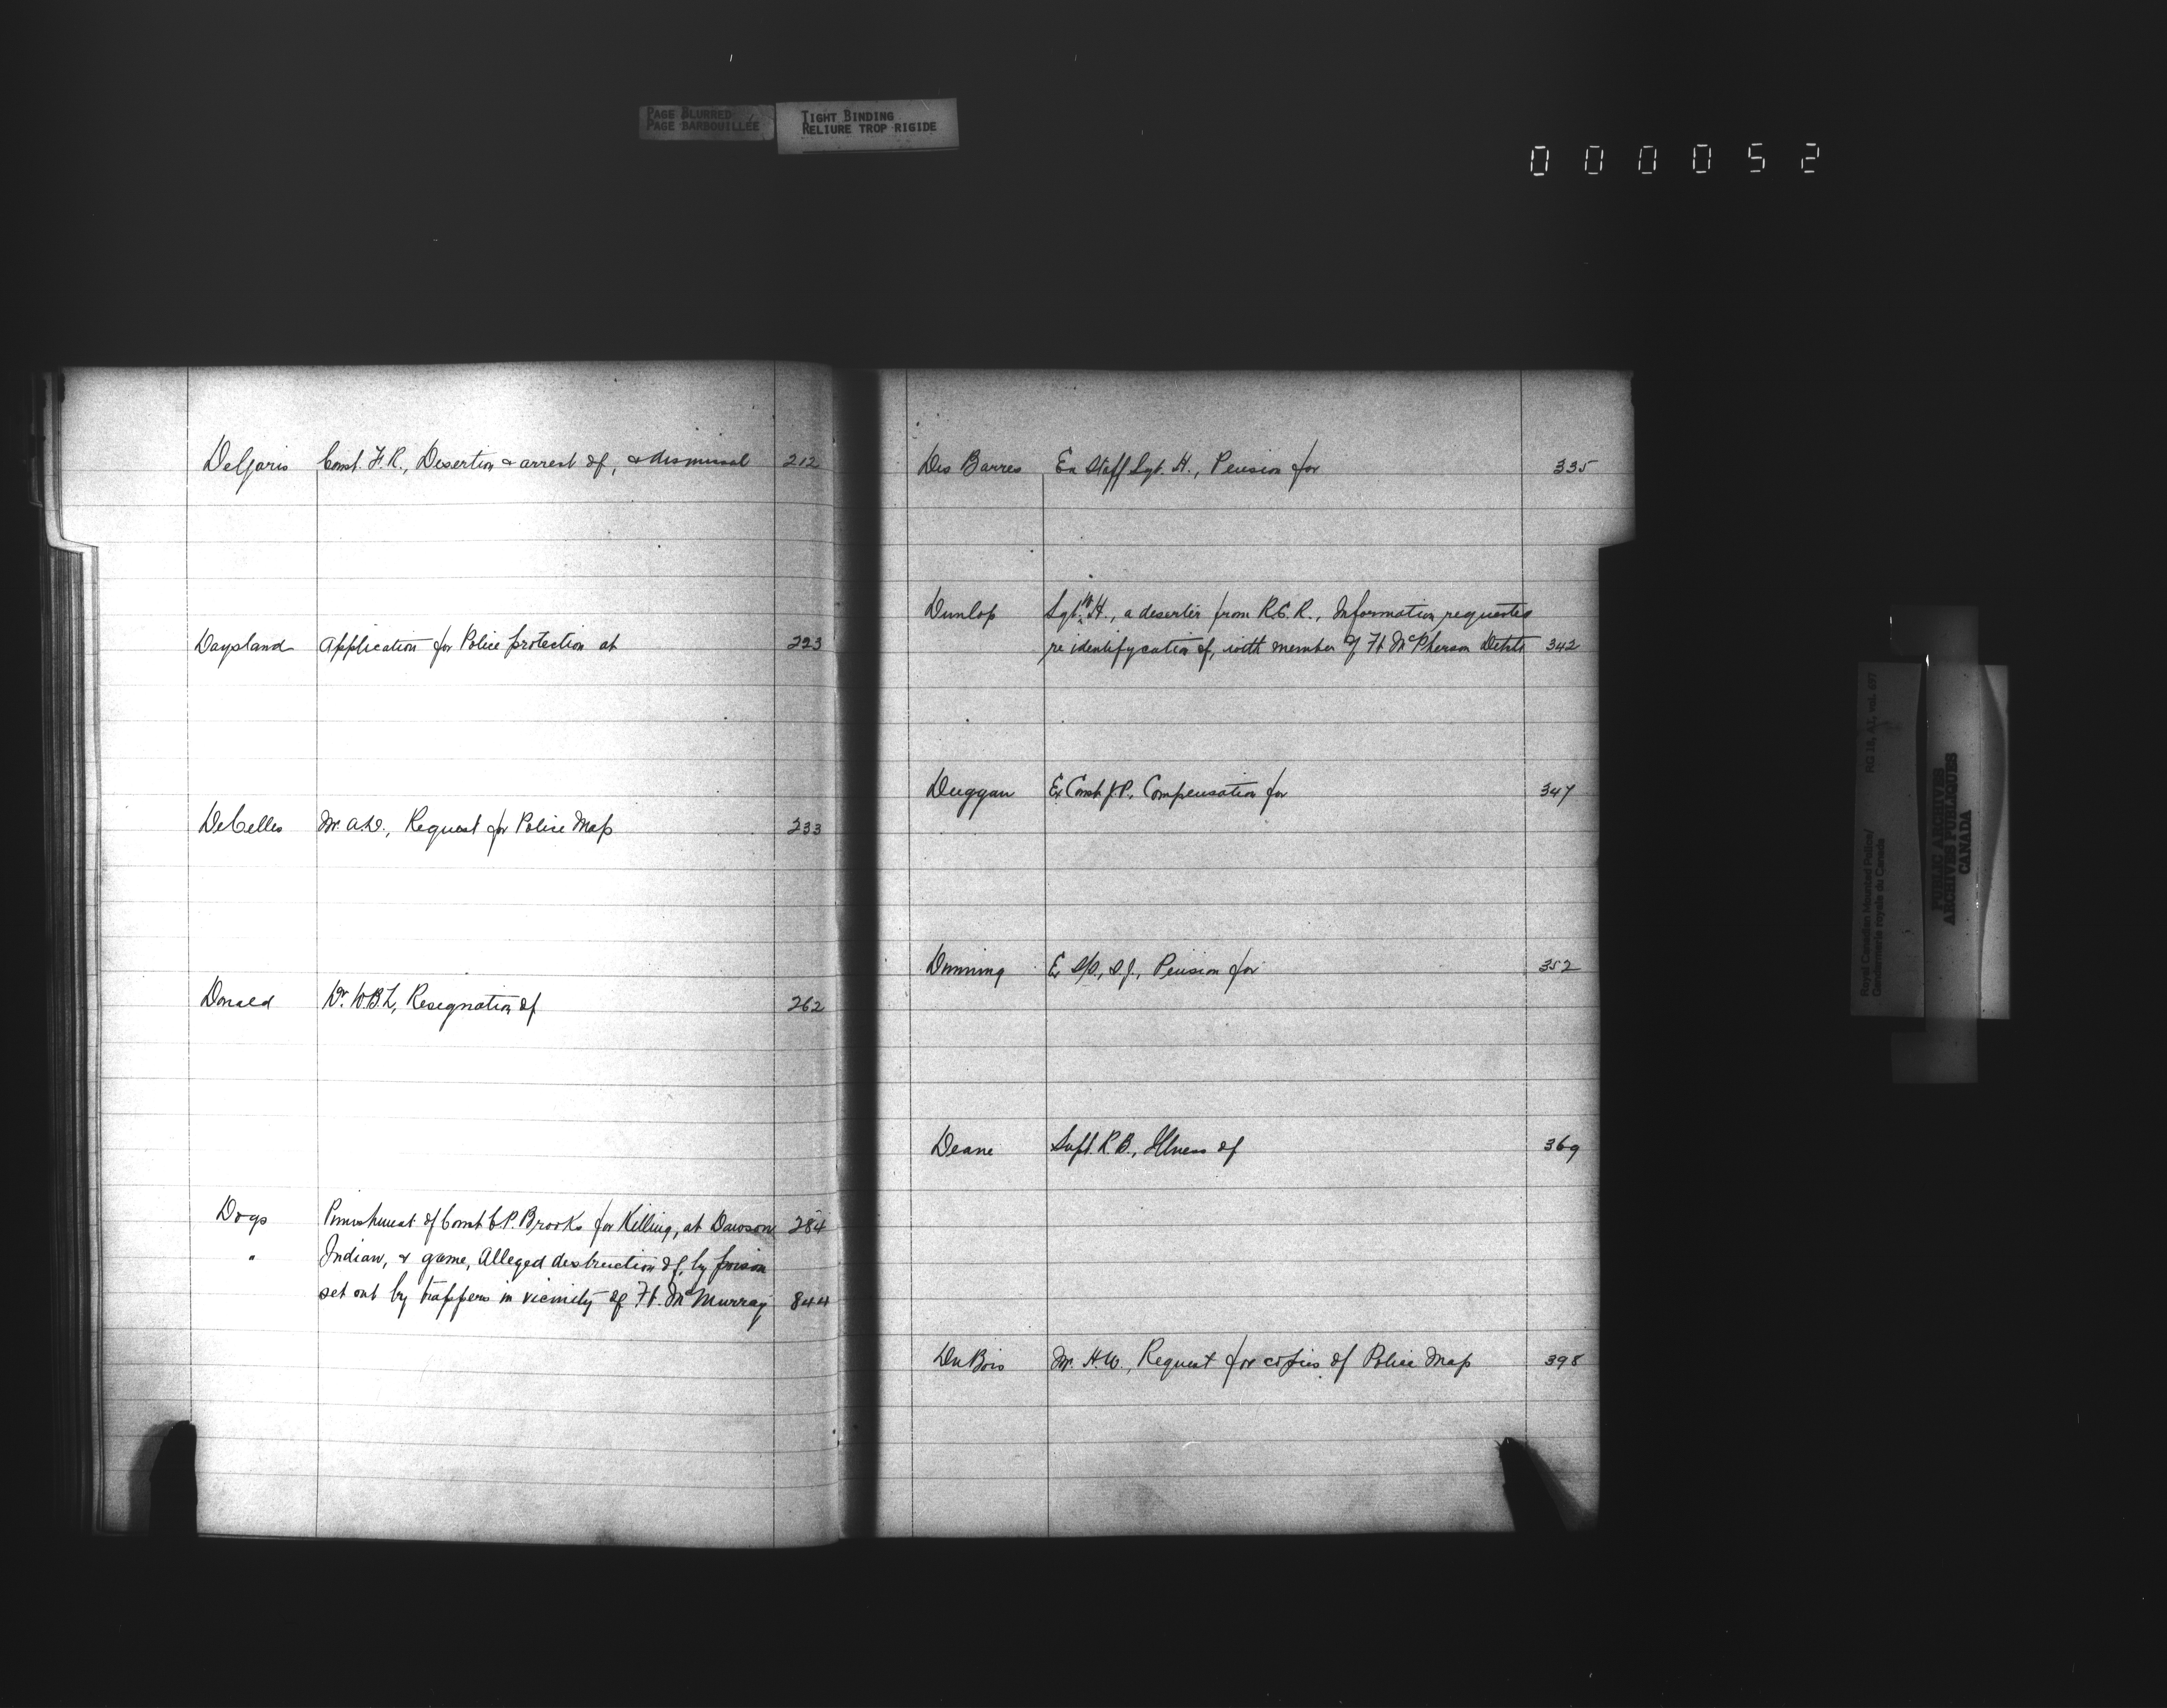 PAGE BLURRED
PAGE BARBOUILLÉE
TIGHT BINDING
RELIURE TROP RIGIDE
000052
DeGaris Const. F.R., Desertion & arrest of, & dismissal 212
Daysland Application for Police protection at 223
DeCelles Mr. A.D., Request for Police Map 233
Donald Dr. W.B.L, Resignation of 262
Dogs Punishment of Const C.P. Brooks for Killing, at Dawson 284
" Indian, & game, Alleged destruction of, by poison
set out by trappers in vicinity of Ft. McMurray 844
Des Barres Ex Staff Sgt. H., Pension for 335
Dunlop Sgt. W.H., a deserter from R.C.R., Information requested
re identifycation of, with member of Ft McPherson Detcht 342
Duggan Ex Const J.P. Compensation for 347
Dunning Ex S/S, S.J., Pension for 352
Deane Supt. R.B., Illness of 369
DuBois Mr. H.W., Request for copies of Police Map 398
Royal Canadian Mounted Police/
Gendarmerie royale du Canada
RG 18, A2, vol. 697
PUBLIC ARCHIVES
ARCHIVES PUBLIQUES
CANADA